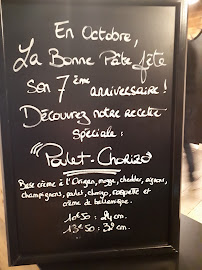 En Octobre,
La Bonne Pâte fête
son 7ème anniversaire !
Découvrez notre recette
spéciale :
"Poulet-Chorizo"
Base crème à l'Origan, mozza, cheddar, oignons,
champignons, poulet, chorizo, roquette et
crème de balsamique.
10€50 : 26cm.
13€50 : 32cm.